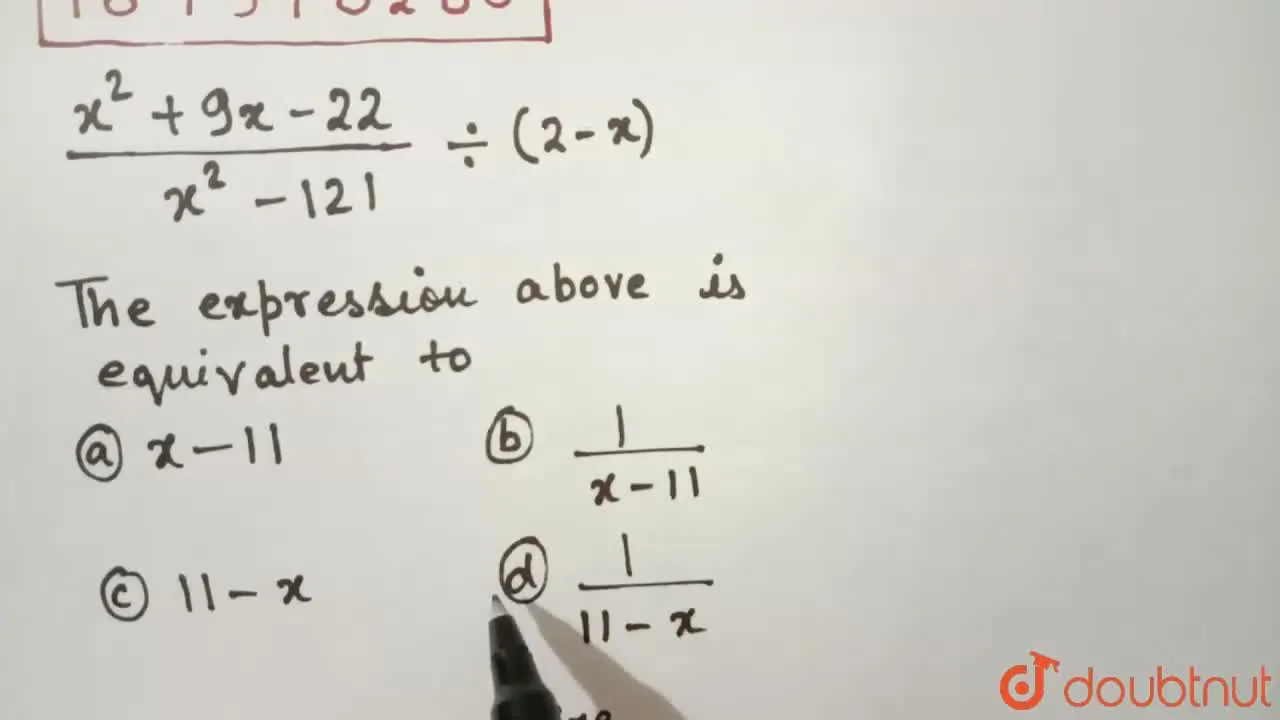 x² + 9x - 22
x² - 121
÷ (2 - x)
The expression above is
equivalent to
ⓐ x - 11
ⓑ 1
x - 11
ⓒ 11 - x
ⓓ 1
11 - x
doubtnut